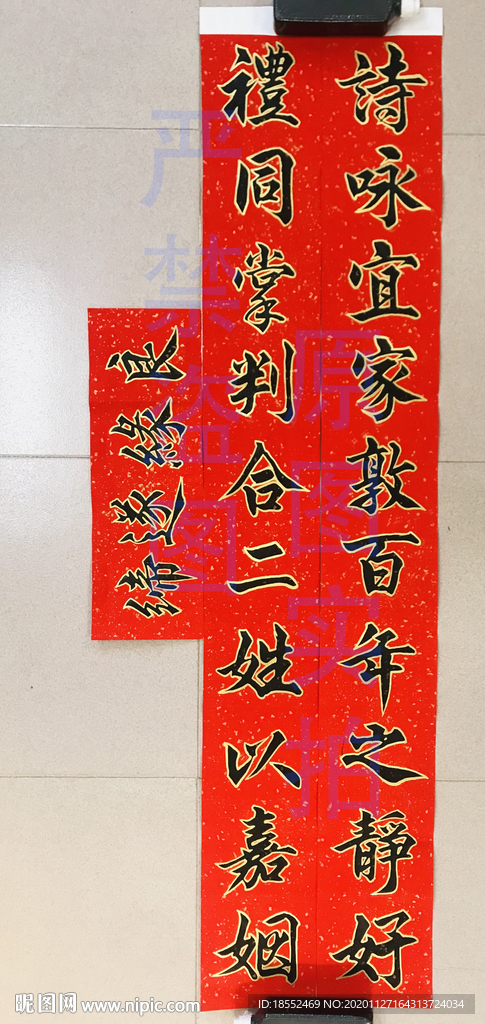 詩咏宜家敦百年之靜好
禮同掌判合二姓以嘉姻
良緣遂締
严禁盗图
原图实拍
昵图网 www.nipic.com
ID:18552469 NO:20201127164313724034